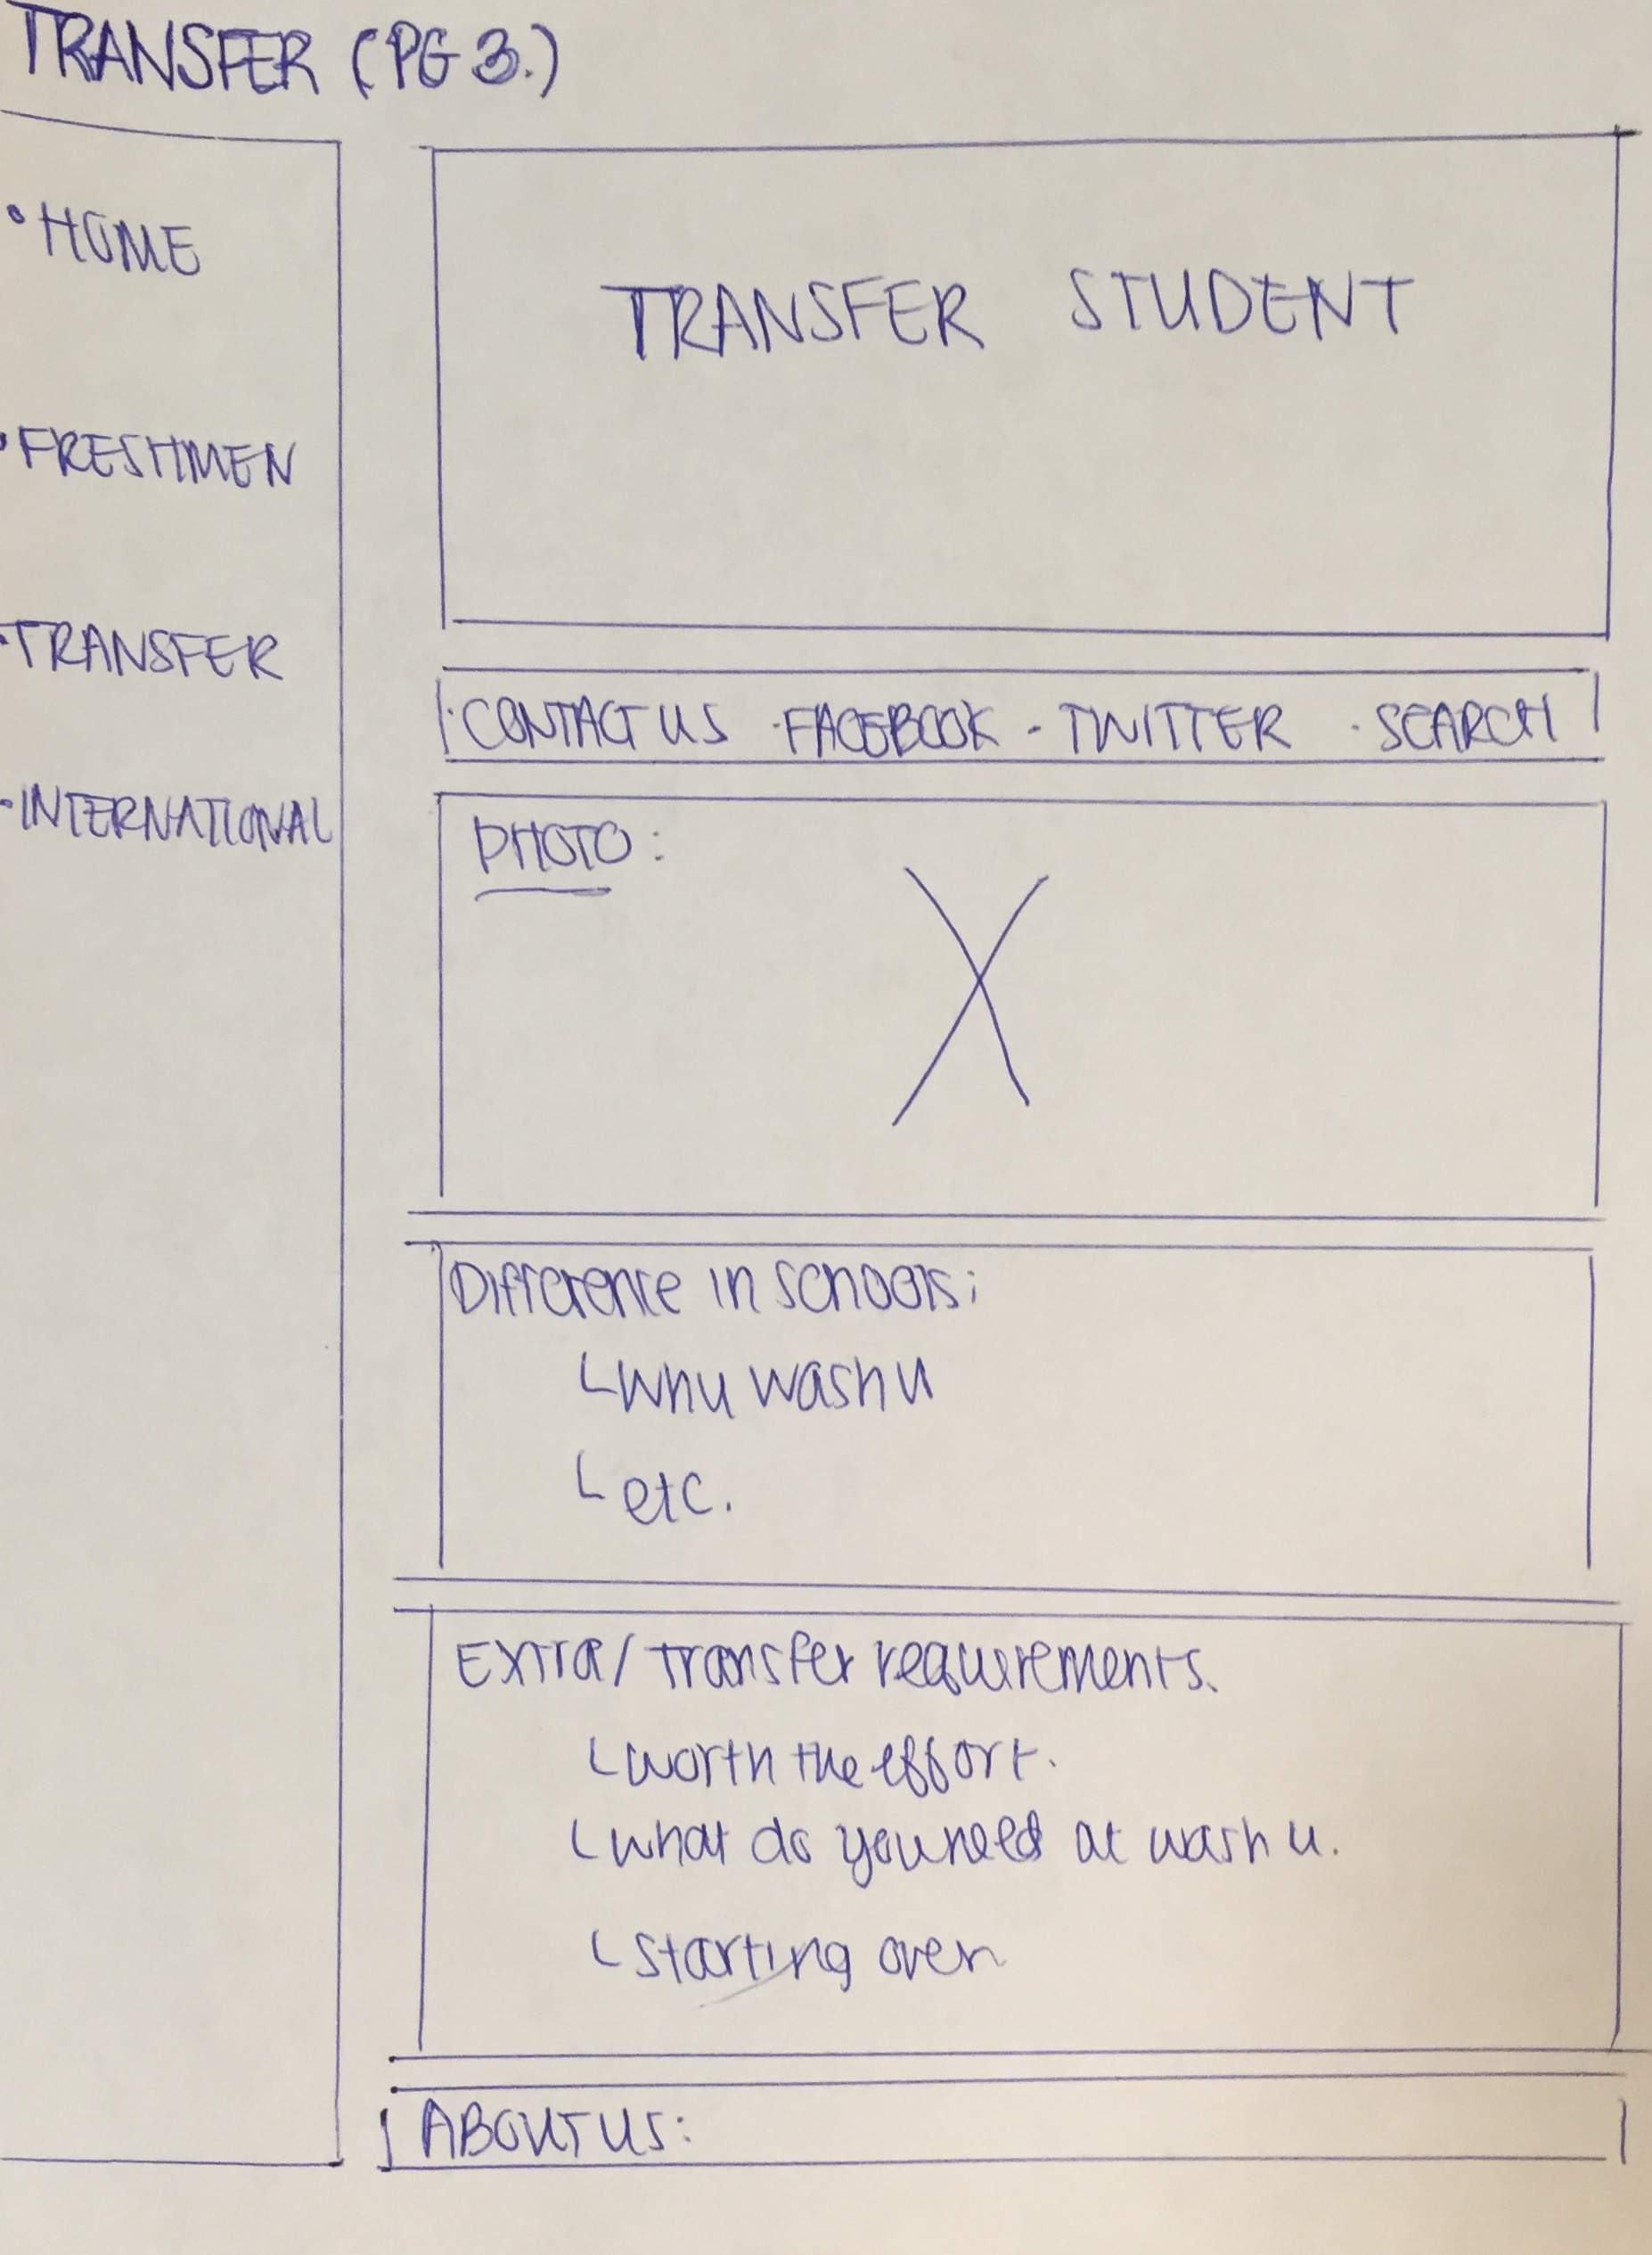 TRANSFER (PG 3.)
• HOME
• FRESHMEN
• TRANSFER
• INTERNATIONAL
TRANSFER STUDENT
• CONTACT US • FACEBOOK • TWITTER • SEARCH
PHOTO:
X
Difference in schools:
└ why wash u
└ etc.
Extra / transfer requirements.
└ worth the effort.
└ what do you need at wash u.
└ starting over
ABOUT US: